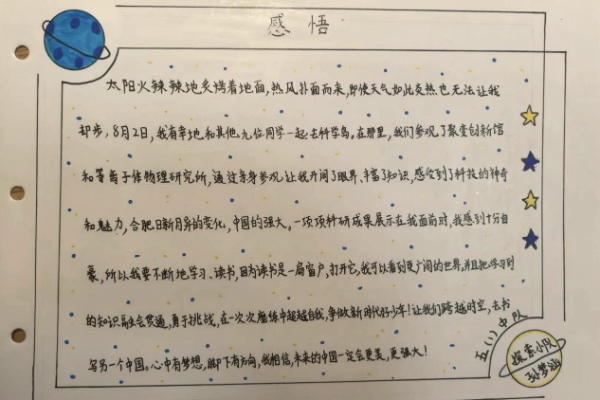 感悟
太阳火辣辣地炙烤着地面,热风扑面而来,即使天气如此炎热也无法让我
却步,8月2日,我有幸地和其他九位同学一起去科学岛。在那里,我们参观了聚变创新馆
和等离子体物理研究所,通过亲身参观让我开阔了眼界、丰富了知识,感受到了科技的神奇
和魅力,合肥日新月异的变化,中国的强大。一项项科研成果展示在我面前时,我感到十分自
豪,所以我要不断地学习、读书,因为读书是一扇窗户,打开它,我可以看到更广阔的世界。并且把学习到
的知识融会贯通,勇于挑战,在一次次磨练中超越自我,争做新时代好少年!让我们跨越时空,去书
写另一个中国。心中有梦想,脚下有方向,我相信,未来的中国一定会更美,更强大!
五(1)中队
探索小队
孙梦